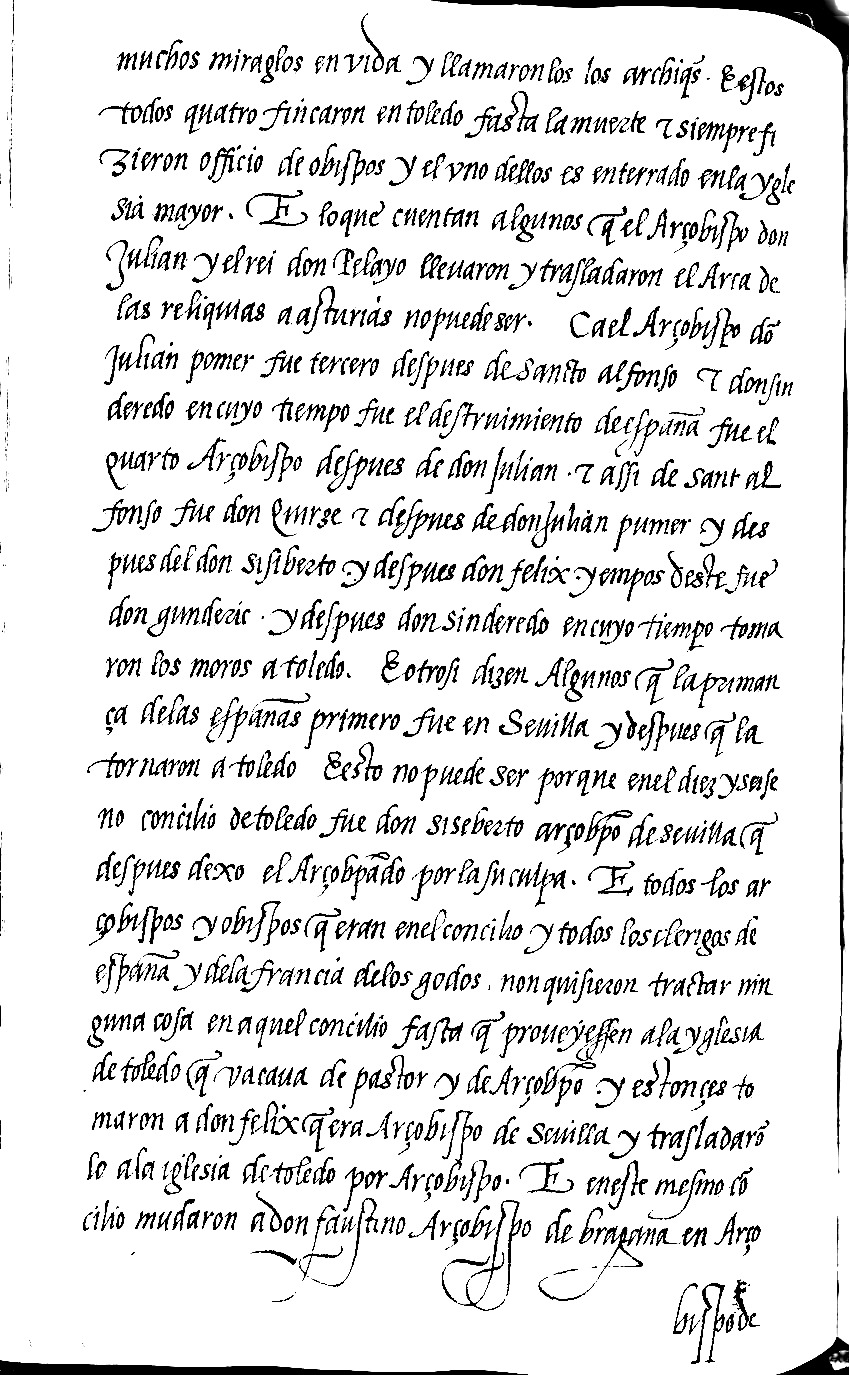 muchos miraglos en vida y llamaron los los archiq̃s. E estos
todos quatro fincaron en toledo fasta la muerte τ siempre fi
zieron officio de obispos y el vno dellos es enterrado en la ygle
sia mayor. E lo que cuentan algunos q̃ el Arçobispo don
Julian y el rei don Pelayo lleuaron y trasladaron el Arca de
las reliquias a asturias no puede ser. Ca el Arçobispo dõ
Julian pomer fue tercero despues de Sancto alfonso τ don sin
deredo en cuyo tiempo fue el destruimiento de españa fue el
quarto Arçobispo despues de don Julian. τ assi de sant al
fonso fue don Quirze τ despues de don Julian pumer y des
pues del don sisiberto y despues don felix. y empos deste fue
don gunderic. y despues don Sinderedo en cuyo tiempo toma
ron los moros a toledo. E otrosi dizen Algunos q̃ la priman
ça de las españas primero fue en Sevilla y despues q̃ la
tornaron a toledo E esto no puede ser porque en el diez y seise
no concilio de toledo fue don siseberto arçobp̃o de sevilla q̃
despues dexo el Arçobpãdo por la su culpa. E todos los ar
çobispos y obispos q̃ eran en el concilio y todos los clerigos de
españa y de la francia de los godos. non quisieron tractar nin
guna cosa en aquel concilio fasta q̃ proveyessen a la yglesia
de toledo q̃ vacaua de pastor y de Arçobp̃o. y estonçes to
maron a don felix q̃ era Arçobispo de Sevilla y trasladarõ
lo a la iglesia de toledo por Arçobispo. E en este mesmo cõ
cilio mudaron a don faustino Arçobispo de bragana en Arço
bispo de